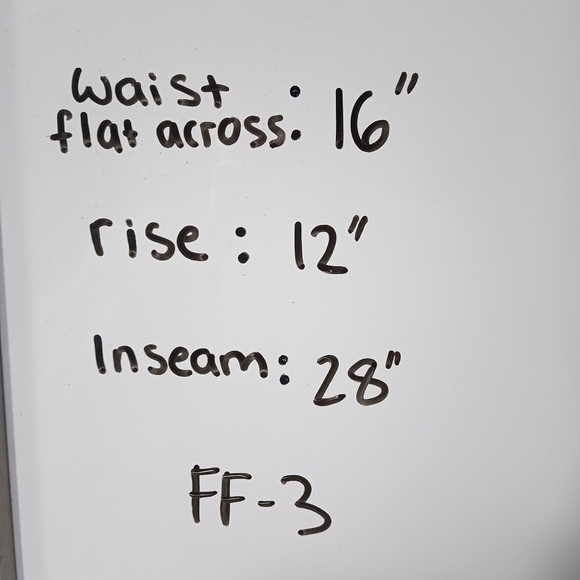 waist
flat across: 16"
rise: 12"
Inseam: 28"
FF-3